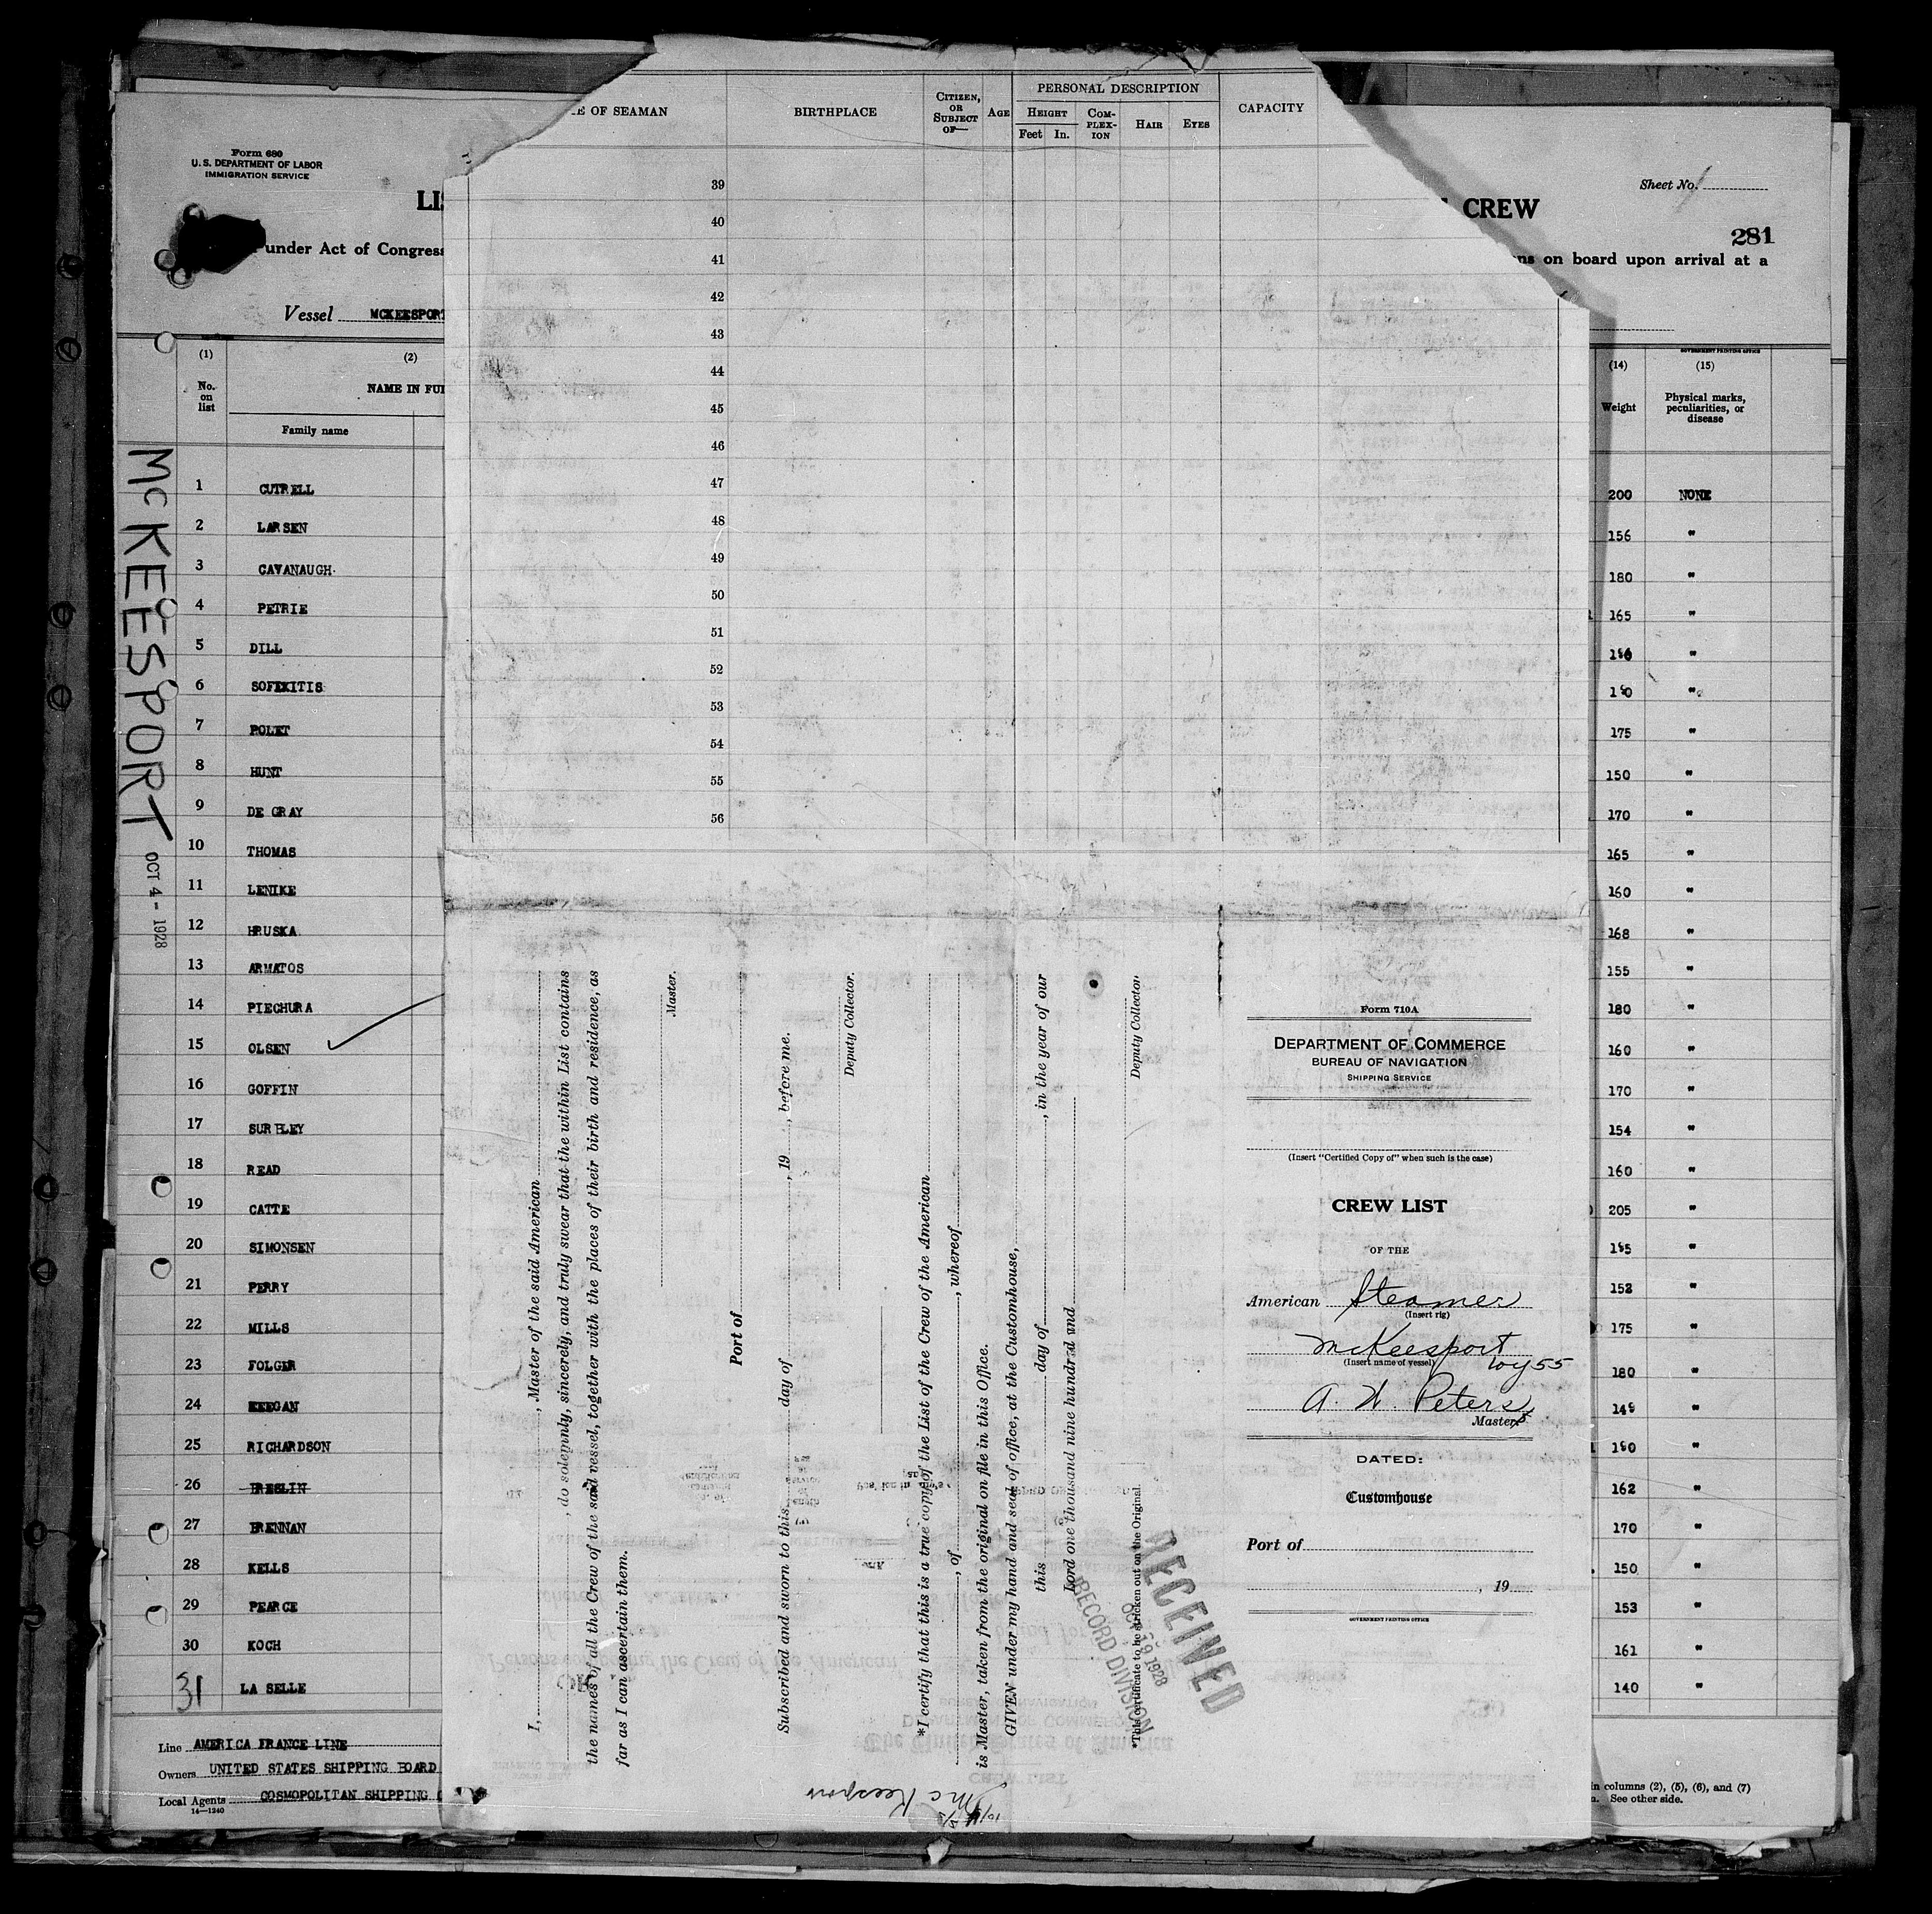 Form 680
U. S. DEPARTMENT OF LABOR
IMMIGRATION SERVICE
LI
CREW
Sheet No. 1
281
under Act of Congress
ns on board upon arrival at a
Vessel MCKEESPORT
(1) (2)
No. on list
NAME IN FUL
Family name
GOVERNMENT PRINTING OFFICE
(14) (15)
Weight
Physical marks, peculiarities, or disease
McKEESPORT
OCT 4 - 1928
1 CUTRELL 200 NONE
2 LARSEN 156 "
3 CAVANAUGH 180 "
4 PETRIE 165 "
5 DILL "
6 SOFEKITIS "
7 ROLET 175 "
8 HUNT 150 "
9 DE GRAY 170 "
10 THOMAS 165 "
11 LENIKE 160 "
12 HRUSKA 168 "
13 ARMATOS 155 "
14 PIECHURA 180 "
15 OLSEN 160 "
16 GOFFIN 170 "
17 SURPLEY 154 "
18 READ 160 "
19 CATTE 205 "
20 SIMONSEN "
21 PERRY 152 "
22 MILLS 175 "
23 FOLGER 180 "
24 KEEGAN "
25 RICHARDSON 190 "
26 BRESLIN 162 "
27 BRENNAN 170 "
28 KELLS 150 "
29 PEARCE 153 "
30 KOCH 161 "
31 LA SELLE 140 "
Line AMERICA FRANCE LINE
Owners UNITED STATES SHIPPING BOARD
Local Agents COSMOPOLITAN SHIPPING
14—1240
in columns (2), (5), (6), and (7)
See other side.
E OF SEAMAN
BIRTHPLACE
CITIZEN, OR SUBJECT OF—
AGE
PERSONAL DESCRIPTION
HEIGHT
Feet In.
COM-PLEX-ION
HAIR
EYES
CAPACITY
39
40
41
42
43
44
45
46
47
48
49
50
51
52
53
54
55
56
I, , Master of the said American
, do solemnly, sincerely, and truly swear that the within List contains
the names of all the Crew of the said vessel, together with the places of their birth and residence, as
far as I can ascertain them.
Master.
Port of
Subscribed and sworn to this day of , 19 , before me.
Deputy Collector.
*I certify that this is a true copy of the List of the Crew of the American
, of , whereof
is Master, taken from the original on file in this Office.
GIVEN under my hand and seal of office, at the Customhouse,
this day of , in the year of our
Lord one thousand nine hundred and
Deputy Collector.
*This certificate to be stricken out on the Original.
RECEIVED
OCT 19 1928
RECORD DIVISION
McKeesport
Form 710A
DEPARTMENT OF COMMERCE
BUREAU OF NAVIGATION
SHIPPING SERVICE
(Insert "Certified Copy of" when such is the case)
CREW LIST
OF THE
American Steamer
(Insert rig)
McKeesport
(Insert name of vessel)
Voy 55
A. W. Peters
Master
DATED:
Customhouse
Port of
, 19
GOVERNMENT PRINTING OFFICE